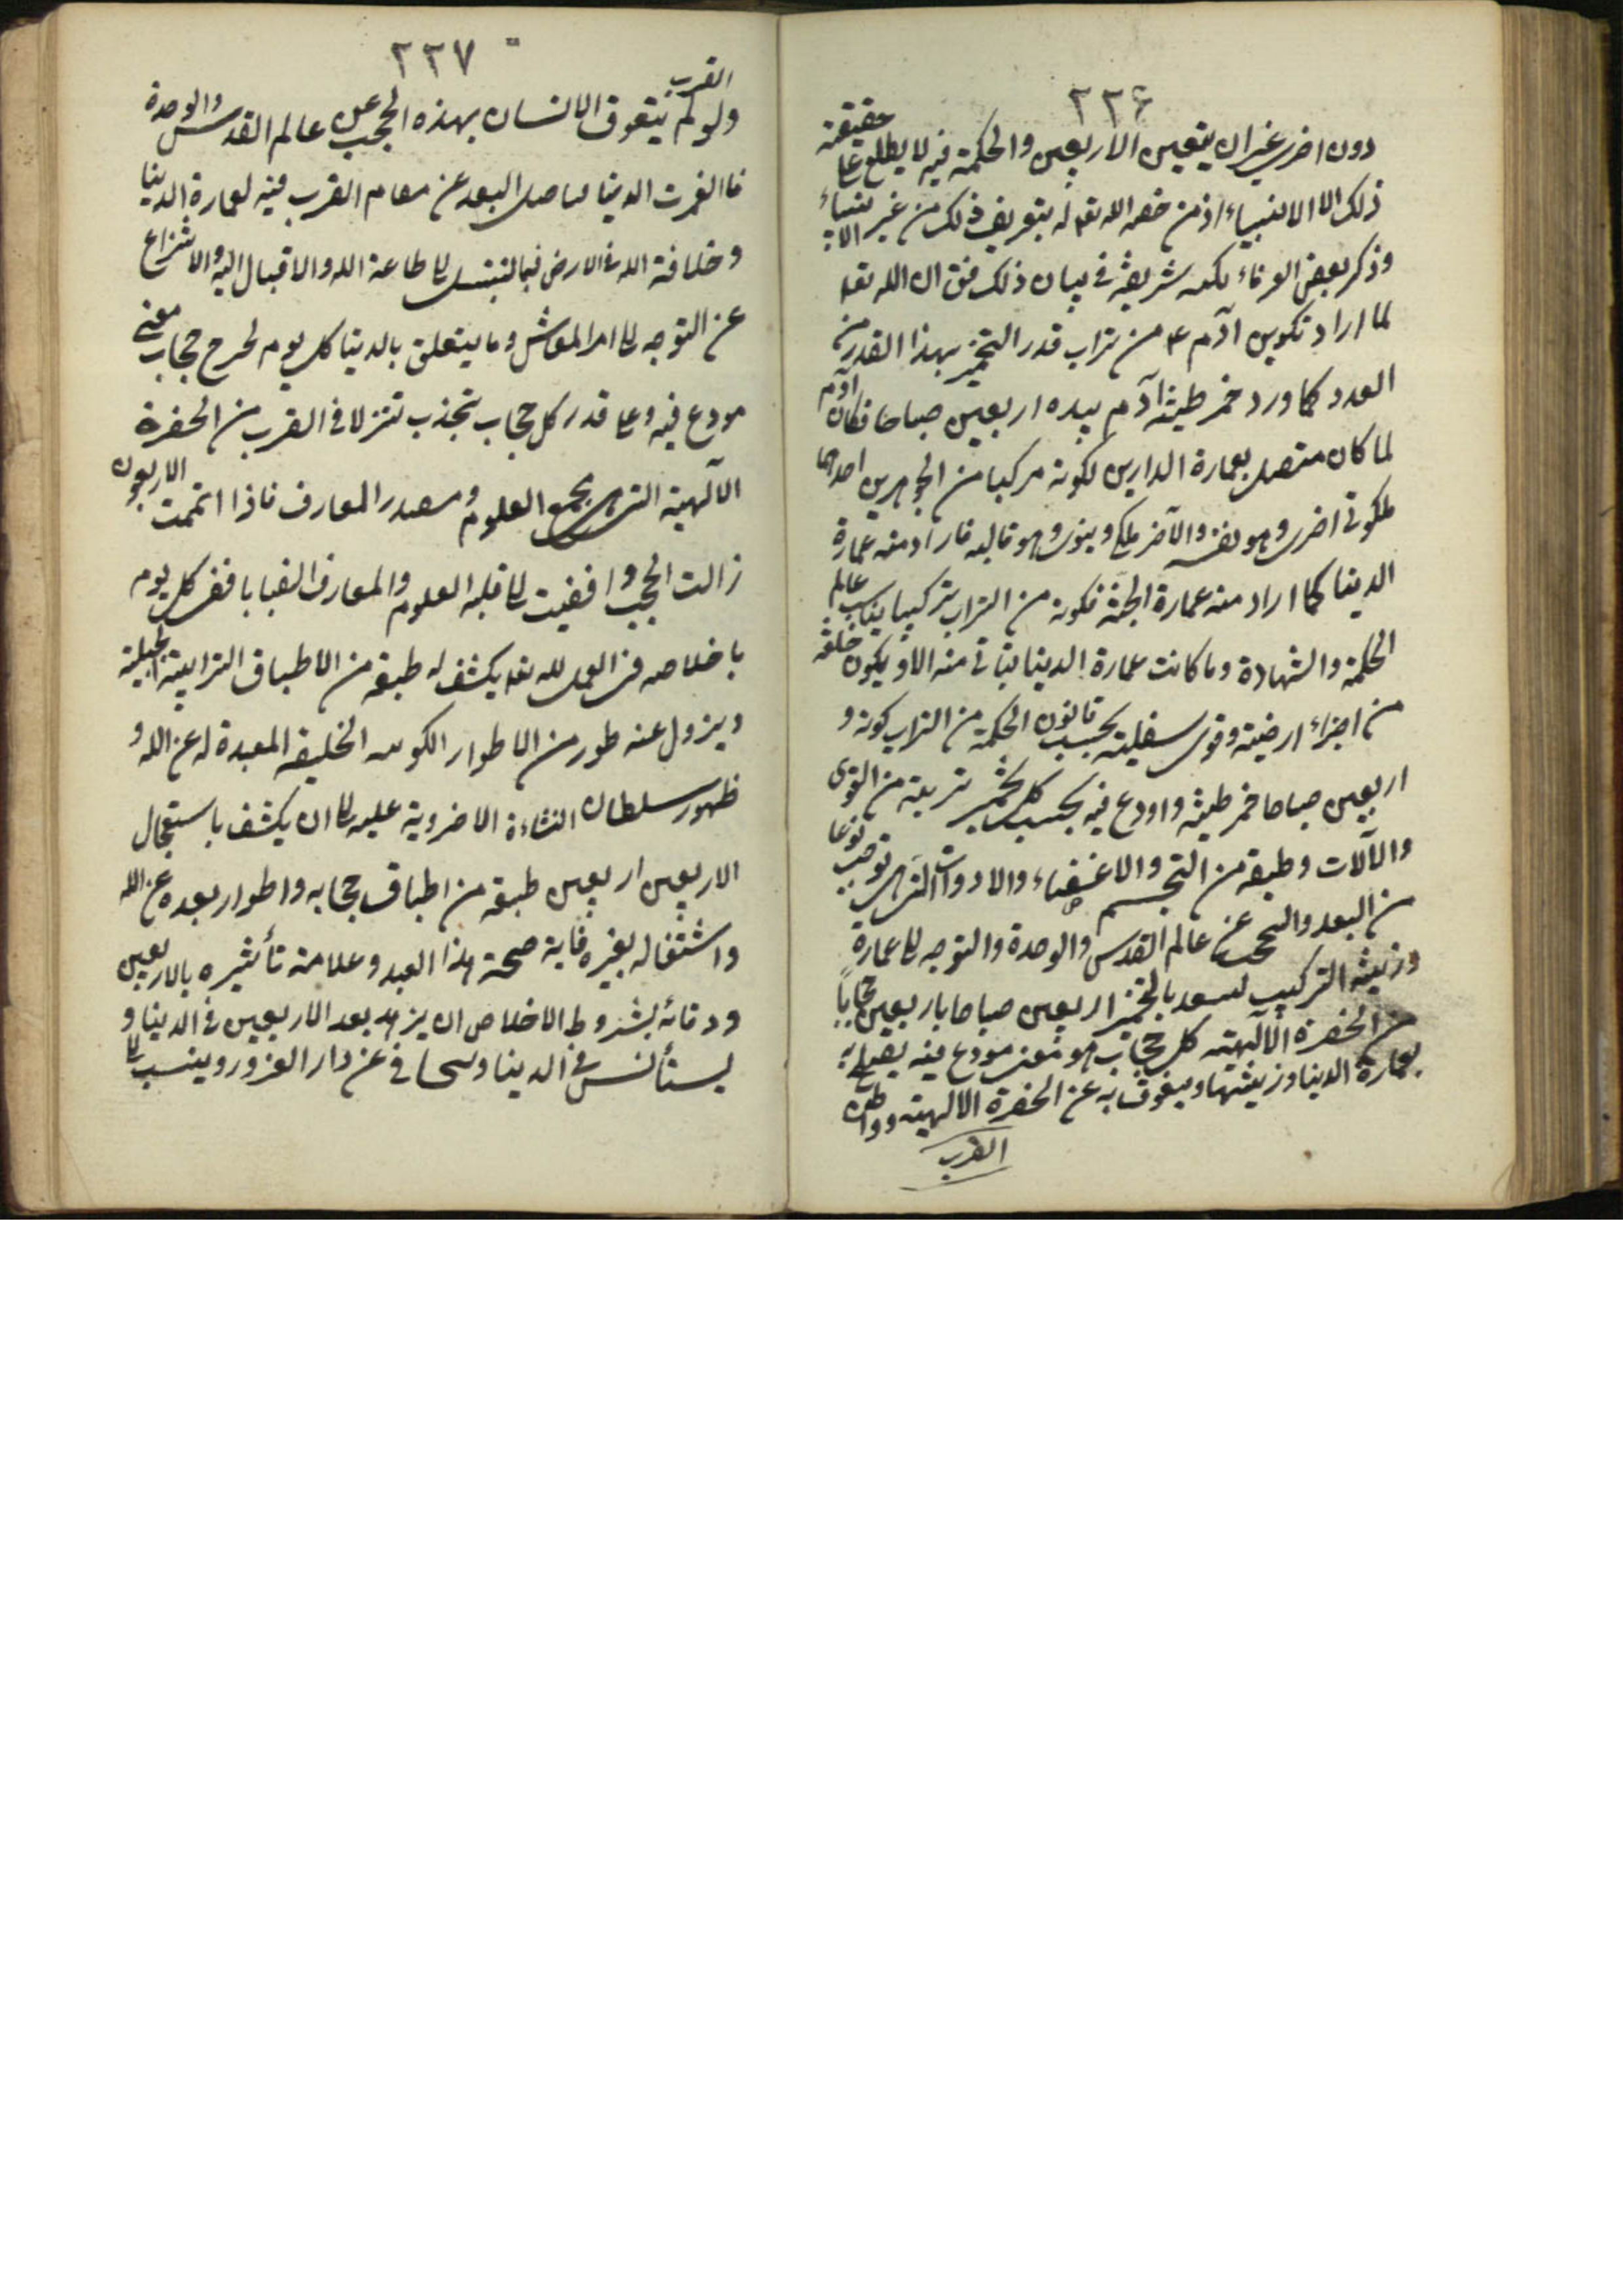 ٢٢٦
دون اخرى غير ان يتعين الاربعين والحكمة فيه لا يطلع على حقيقة
ذلك الا الانبياء اذ من خصه الله تع له بتعريف ذلك من غير الانبياء
وذكر بعض العرفاء لكمه شريفة في بيان ذلك فق ان الله تع
لما اراد تكوين آدم ع من تراب قدر التخمير بهذا القدر من
العدد كما ورد خمر طينة آدم بيده اربعين صباحا فكان آدم
لما كان متصل بعمارة الدارين لكونه مركبا من الجوهرين احدهما
ملكوتى اخرى وهو نفسه والآخر ملكى دنيوى وهو قالبه فاراد منه عمارة
الدنيا كما اراد منه عمارة الجنة فكونه من التراب تركيبا يناسب عالم
الحكمة والشهادة وما كانت عمارة الدنيا يتأتى منه الا و يكون خلقه
من اجزاء ارضية وقوى سفلية بحسب قانون الحكمة من التراب كونه و
اربعين صباحا خمر طينة واودع فيه بحسب كل تخمير تربية من القوى
والآلات وطبقة من التجسم والاغشية والادوات التى توجب نوعا
من البعد والتحجب عن عالم القدس والوحدة والتوجه الى عمارة
وزينة التركيب لبعد بالتخمير اربعين صباحا باربعين حجابا
من الحضرة الالهية كل حجاب هو معنى مودع فيه يصلح به
بعمارة الدنيا وزينتها ويعوق به عن الحضرة الالهية ومواطن
القرب
٢٢٧
القرب
ولو لم يتعوق الانسان بهذه الحجب عن عالم القدس والوحدة
ما انغمرت الدنيا فتاصل البعد عن مقام القرب فيه لعمارة الدنيا
وخلافة الله فى الارض فبالتبتل الى طاعة الله والاقبال اليه والانتزاع
عن التوجه الى امر المعاش وما يتعلق بالدنيا كل يوم لخرج حجاب معنى
مودع فيه وعلى قدر كل حجاب تجذب تنزلا فى القرب من الحضرة
الآلهية التى هى مجمع العلوم ومصدر المعارف فاذا اتممت الاربعون
زالت الحجب وافضيت الى قلبه العلوم والمعارف انصبابا ففى كل يوم
باخلاصه فى العمل لله تع يكشف له طبقة من الاطباق الترابية الجبلية
ويزول عنه طور من الاطوار الكونية الخليقة المبعدة له عن الله و
ظهور سلطان النشاءة الاخروية عليه الى ان يكشف باستعجال
الاربعين اربعين طبقة من اطباق حجابه واطوار بعده عن الله
واشتغاله بغيره فاية صحة هذا العبد وعلامة تأثيره بالاربعين
ووفائه بشروط الاخلاص ان يزهد بعد الاربعين فى الدنيا و
يستأنس فى الدنيا وتجافى عن دار الغرور وينسب الى